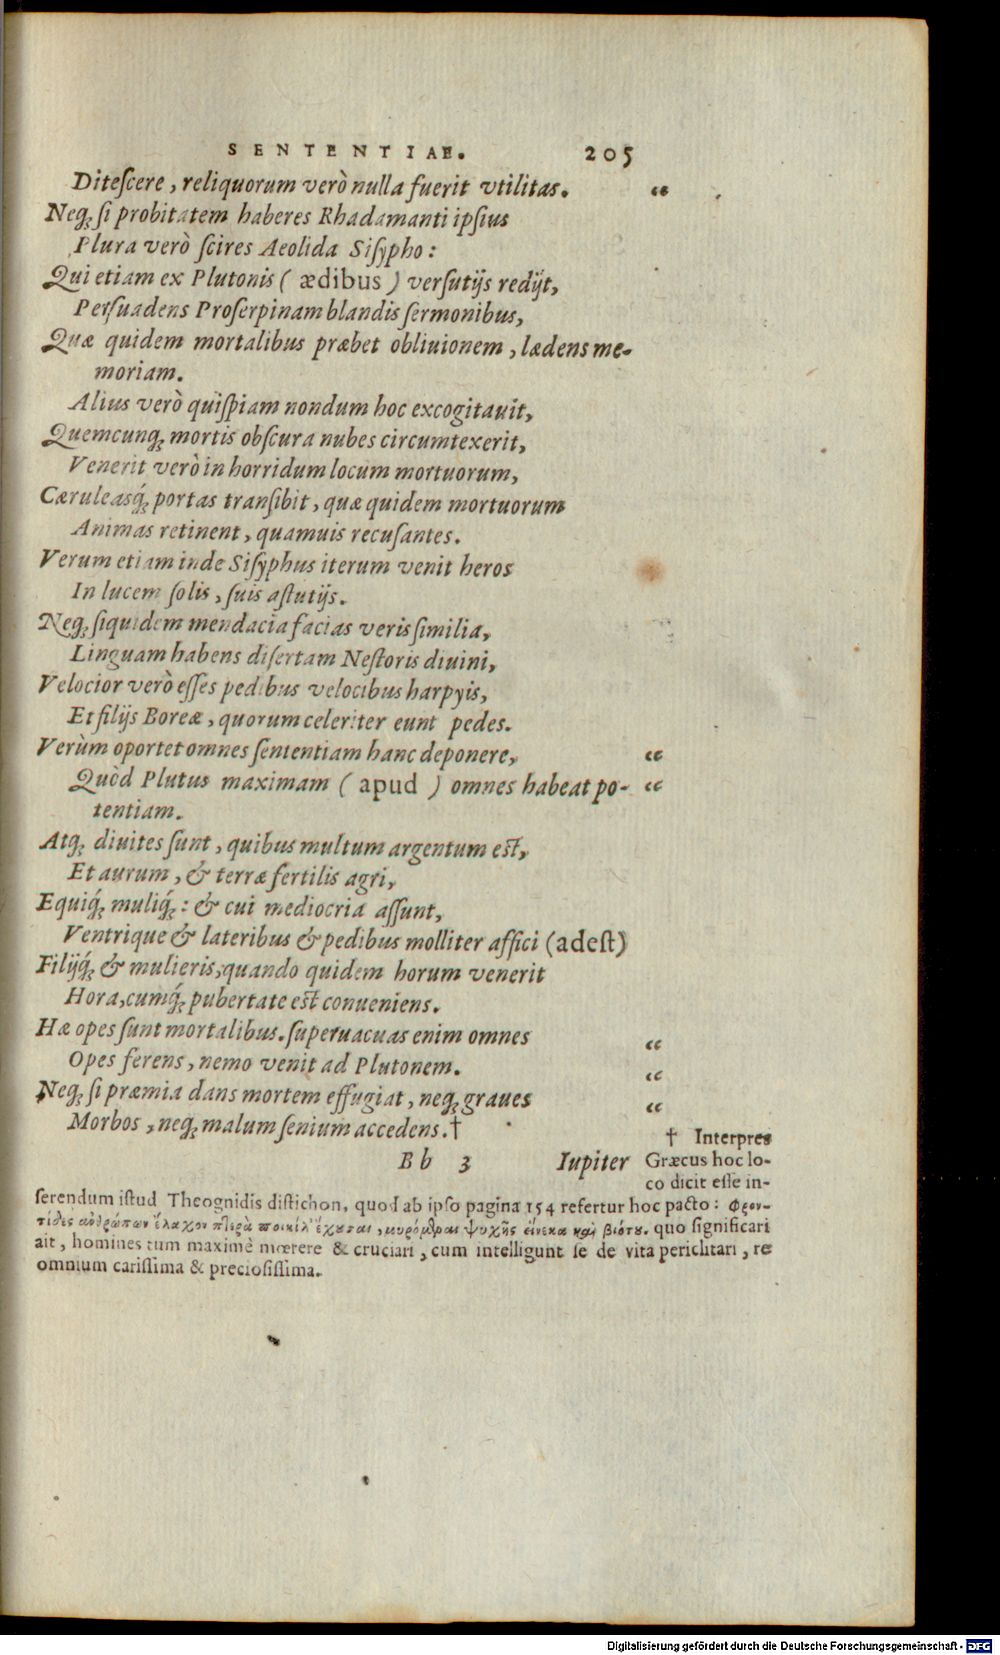 SENTENTIAE. 205
Ditescere, reliquorum verò nulla fuerit vtilitas. “
Neq; si probitatem haberes Rhadamanti ipsius
Plura verò scires Aeolida Sisypho:
Qui etiam ex Plutonis ( ædibus ) versutijs redijt,
Persuadens Proserpinam blandis sermonibus,
Quæ quidem mortalibus præbet obliuionem, lædens me-
moriam.
Alius verò quispiam nondum hoc excogitauit,
Quemcunq; mortis obscura nubes circumtexerit,
Venerit verò in horridum locum mortuorum,
Cæruleasq́; portas transibit, quæ quidem mortuorum
Animas retinent, quamuis recusantes.
Verum etiam inde Sisyphus iterum venit heros
In lucem solis, suis astutijs.
Neq; siquidem mendacia facias veris similia,
Linguam habens disertam Nestoris diuini,
Velocior verò esses pedibus velocibus harpyis,
Et filijs Boreæ, quorum celeriter eunt pedes.
Verùm oportet omnes sententiam hanc deponere, “
Quòd Plutus maximam ( apud ) omnes habeat po- “
tentiam.
Atq; diuites sunt, quibus multum argentum est,
Et aurum, & terræ fertilis agri,
Equiq́; muliq́;: & cui mediocria assunt,
Ventrique & lateribus & pedibus molliter affici (adest)
Filijq́; & mulieris, quando quidem horum venerit
Hora, cumq́; pubertate est conueniens.
Hæ opes sunt mortalibus. superuacuas enim omnes “
Opes ferens, nemo venit ad Plutonem. “
Neq; si præmia dans mortem effugiat, neq; graues “
Morbos, neq; malum senium accedens.†
† Interpres
Bb 3 Iupiter Græcus hoc lo-
co dicit esse in-
serendum istud Theognidis distichon, quod ab ipso pagina 154 refertur hoc pacto: Φρον-
τίδες ἀνθρώπων ἔλαχον πτερὰ ποικίλ' ἔχουσαι, μυρόμεναι ψυχῆς εἵνεκα καὶ βιότου. quo significari
ait, homines tum maximè mœrere & cruciari, cum intelligunt se de vita periclitari, re
omnium carissima & preciosissima.
Digitalisierung gefördert durch die Deutsche Forschungsgemeinschaft - DFG